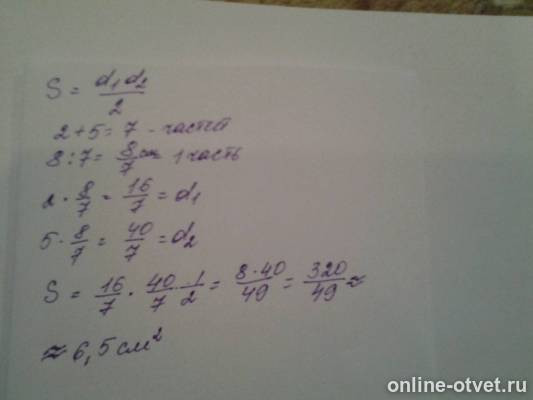 S = d₁d₂/2
2+5=7 - частей
8:7= 8/7 см - 1 часть
2 · 8/7 = 16/7 = d₁
5 · 8/7 = 40/7 = d₂
S = 16/7 · 40/7 · 1/2 = 8·40/49 = 320/49 ≈
≈ 6,5 см²
online-otvet.ru